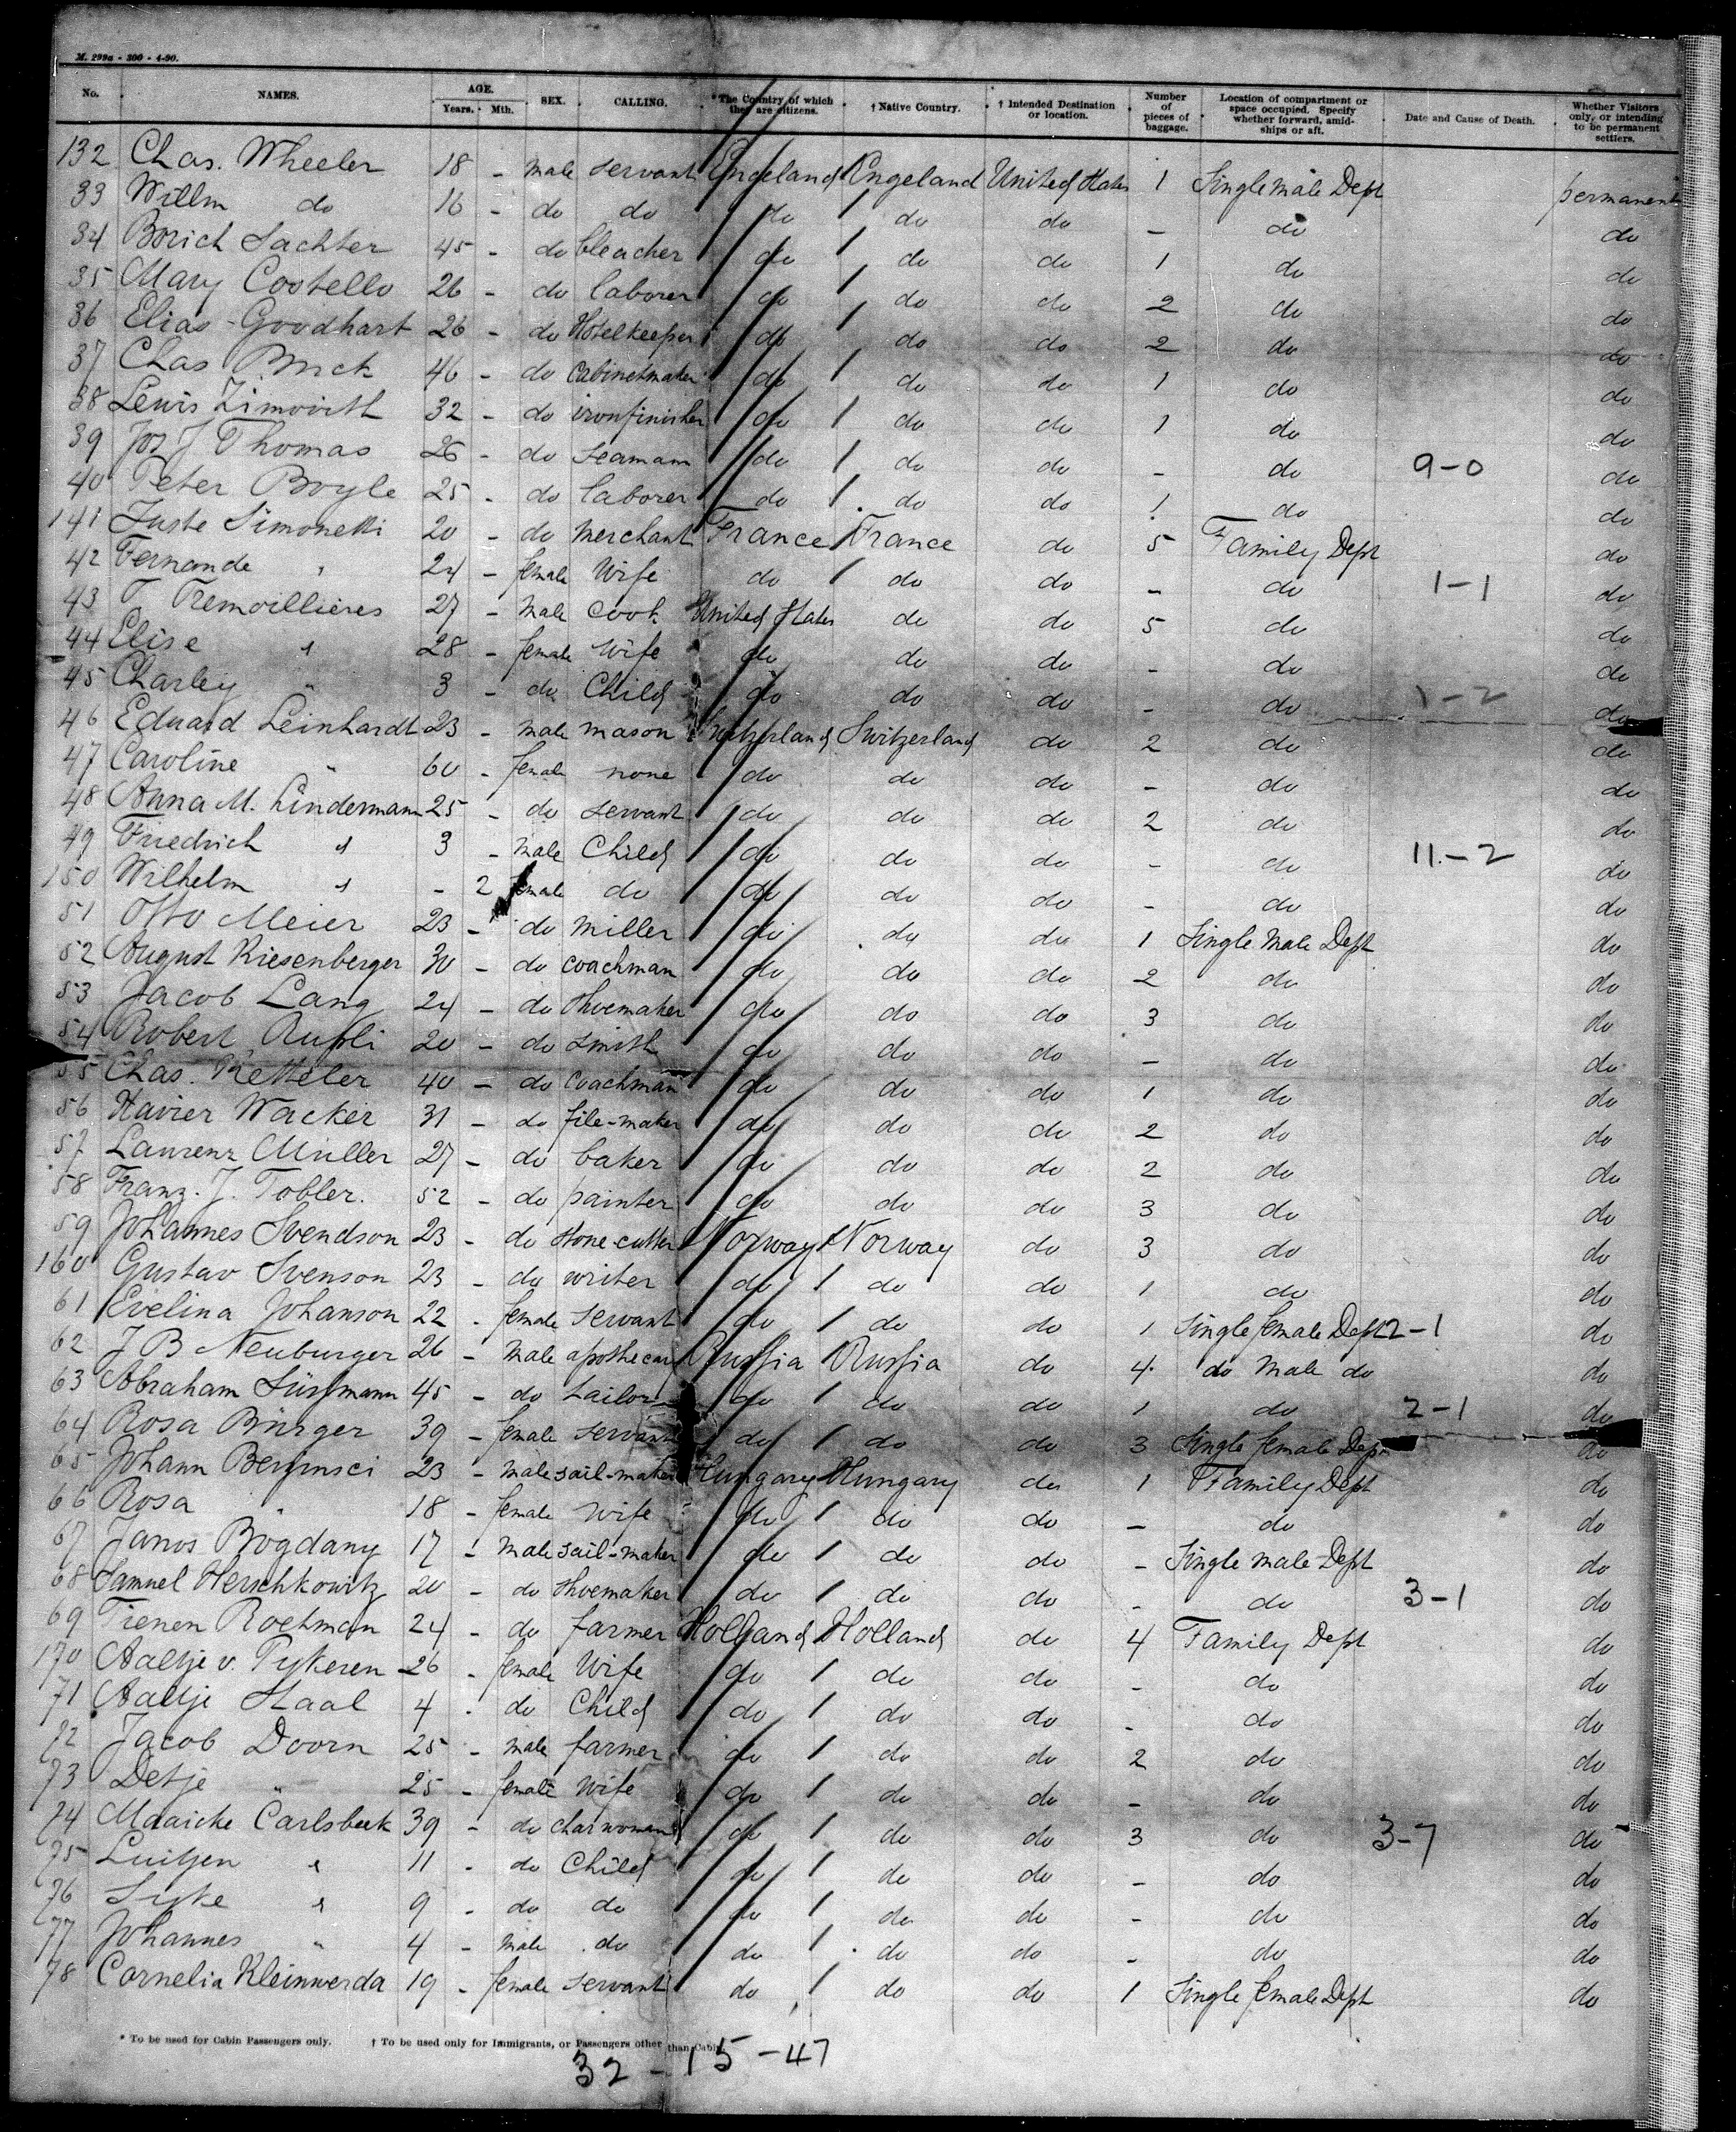 M. 299a - 300 - 4-90.
No. NAMES. AGE. Years. Mth. SEX. CALLING. *The Country of which they are citizens. † Native Country. † Intended Destination or location. Number of pieces of baggage. Location of compartment or space occupied. Specify whether forward, amidships or aft. Date and Cause of Death. Whether Visitors only, or intending to be permanent settlers.
132 Chas. Wheeler 18 - male servant Engeland Engeland United States 1 Single male Dept permanent
33 Willm do 16 - do do do do do - do do
34 Borich Lachter 45 - do bleacher do do do 1 do do
35 Mary Costello 26 - do laborer do do do 2 do do
36 Elias Goodhart 26 - do Hotelkeeper do do do 2 do do
37 Chas Brick 46 - do Cabinetmaker do do do 1 do do
38 Lewis Zimovith 32 - do ironfinisher do do do 1 do do
39 Jos J Thomas 26 - do Seamam do do do - do 9-0 do
40 Peter Boyle 25 - do laborer do do do 1 do do
141 Juste Simonetti 20 - do Merchant France France do 5 Family Dept do
42 Fernande " 24 - female Wife do do do - do 1-1 do
43 T. Tremoillieres 27 - Male Cook United States do do 5 do do
44 Elise " 28 - female Wife do do do - do do
45 Charley " 3 - do Child do do do - do 1-2 do
46 Eduard Leinhardt 23 - male mason Switzerland Switzerland do 2 do do
47 Caroline " 60 - female none do do do - do do
48 Anna M. Lindermann 25 - do servant do do do 2 do do
49 Friedrich " 3 - Male Child do do do - do 11-2 do
150 Wilhelm " - 2 female do do do do - do do
51 Otto Meier 23 - do miller do do do 1 Single Male Dept do
52 August Riesenberger 30 - do coachman do do do 2 do do
53 Jacob Lang 24 - do Shoemaker do do do 3 do do
54 Robert Rupli 20 - do Smith do do do - do do
55 Chas. Ketteler 40 - do Coachman do do do 1 do do
56 Xavier Wacker 31 - do file-maker do do do 2 do do
57 Laurenz Müller 27 - do baker do do do 2 do do
58 Franz. J. Tobler. 52 - do painter do do do 3 do do
59 Johannes Svendson 23 - do Stone-cutter Norway Norway do 3 do do
160 Gustav Svenson 23 - do writer do do do 1 do do
61 Evelina Johanson 22 - female servant do do do 1 Single female Dept 2-1 do
62 J B Neuburger 26 - Male apothecary Russia Russia do 4. do Male do do
63 Abraham Süssmann 45 - do tailor do do do 1 do 2-1 do
64 Rosa Bürger 39 - female servant do do do 3 Single female Dept do
65 Johann 23 - male sail-maker Hungary Hungary do 1 Family Dept do
66 Rosa " 18 - female Wife do do do - do do
67 Janos Bogdany 17 - Male sail-maker do do do - Single male Dept do
68 Samuel Herschkowitz 20 - do Shoemaker do do do - do 3-1 do
69 Tienen Roetman 24 - do farmer Holland Holland do 4 Family Dept do
170 Aaltje v. Pykeren 26 - female Wife do do do - do do
71 Aaltje Staal 4 - do Child do do do - do do
72 Jacob Doorn 25 - male farmer do do do 2 do do
73 Detje " 25 - female Wife do do do - do do
74 Maaicke Carlsbeek 39 - do charwoman do do do 3 do 3-7 do
75 Luitjen " 11 - do Child do do do - do do
76 Sijke " 9 - do do do do do - do do
77 Johannes " 4 - male do do do do - do do
78 Cornelia Kleinwerda 19 - female servant do do do 1 Single female Dept do
* To be used for Cabin Passengers only. † To be used only for Immigrants, or Passengers other than Cabin
32 - 15 - 47